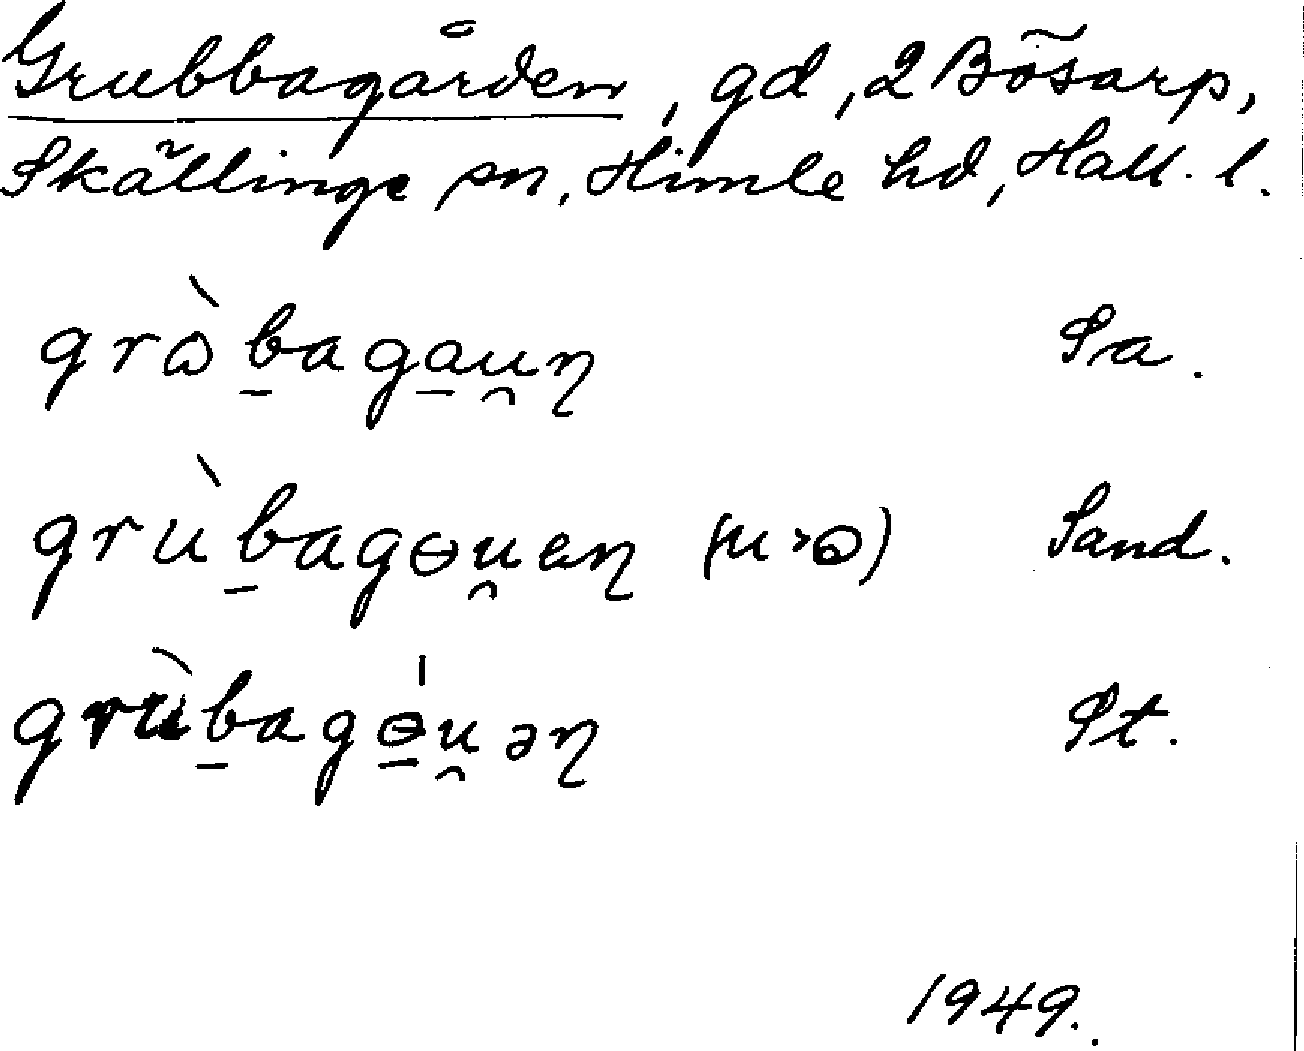 Grubbagården, gd, 2 Bösarp,
Skällinge sn, Himle hd, Hall. l.
grɷ̀b̲aga̲u̯ɳ Sa.
grùb̲agɵu̯ɘɳ (u > ɷ) Sand.
grùb̲agɵ̲́u̯əɳ St.
1949.